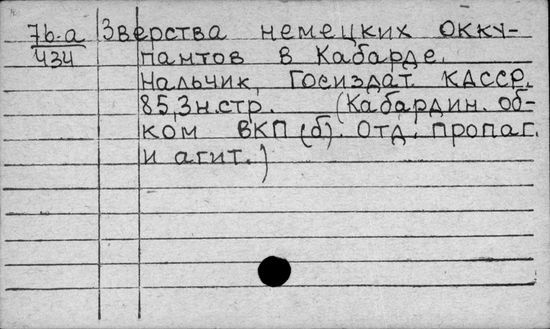 7б-а Зверства немецких окку-
434 пантов в Кабарде.
Нальчик, Госиздат КАССР.
85,3н.стр. (Кабардин. об-
ком ВКП(б). Отд. пропаг.
и агит.)